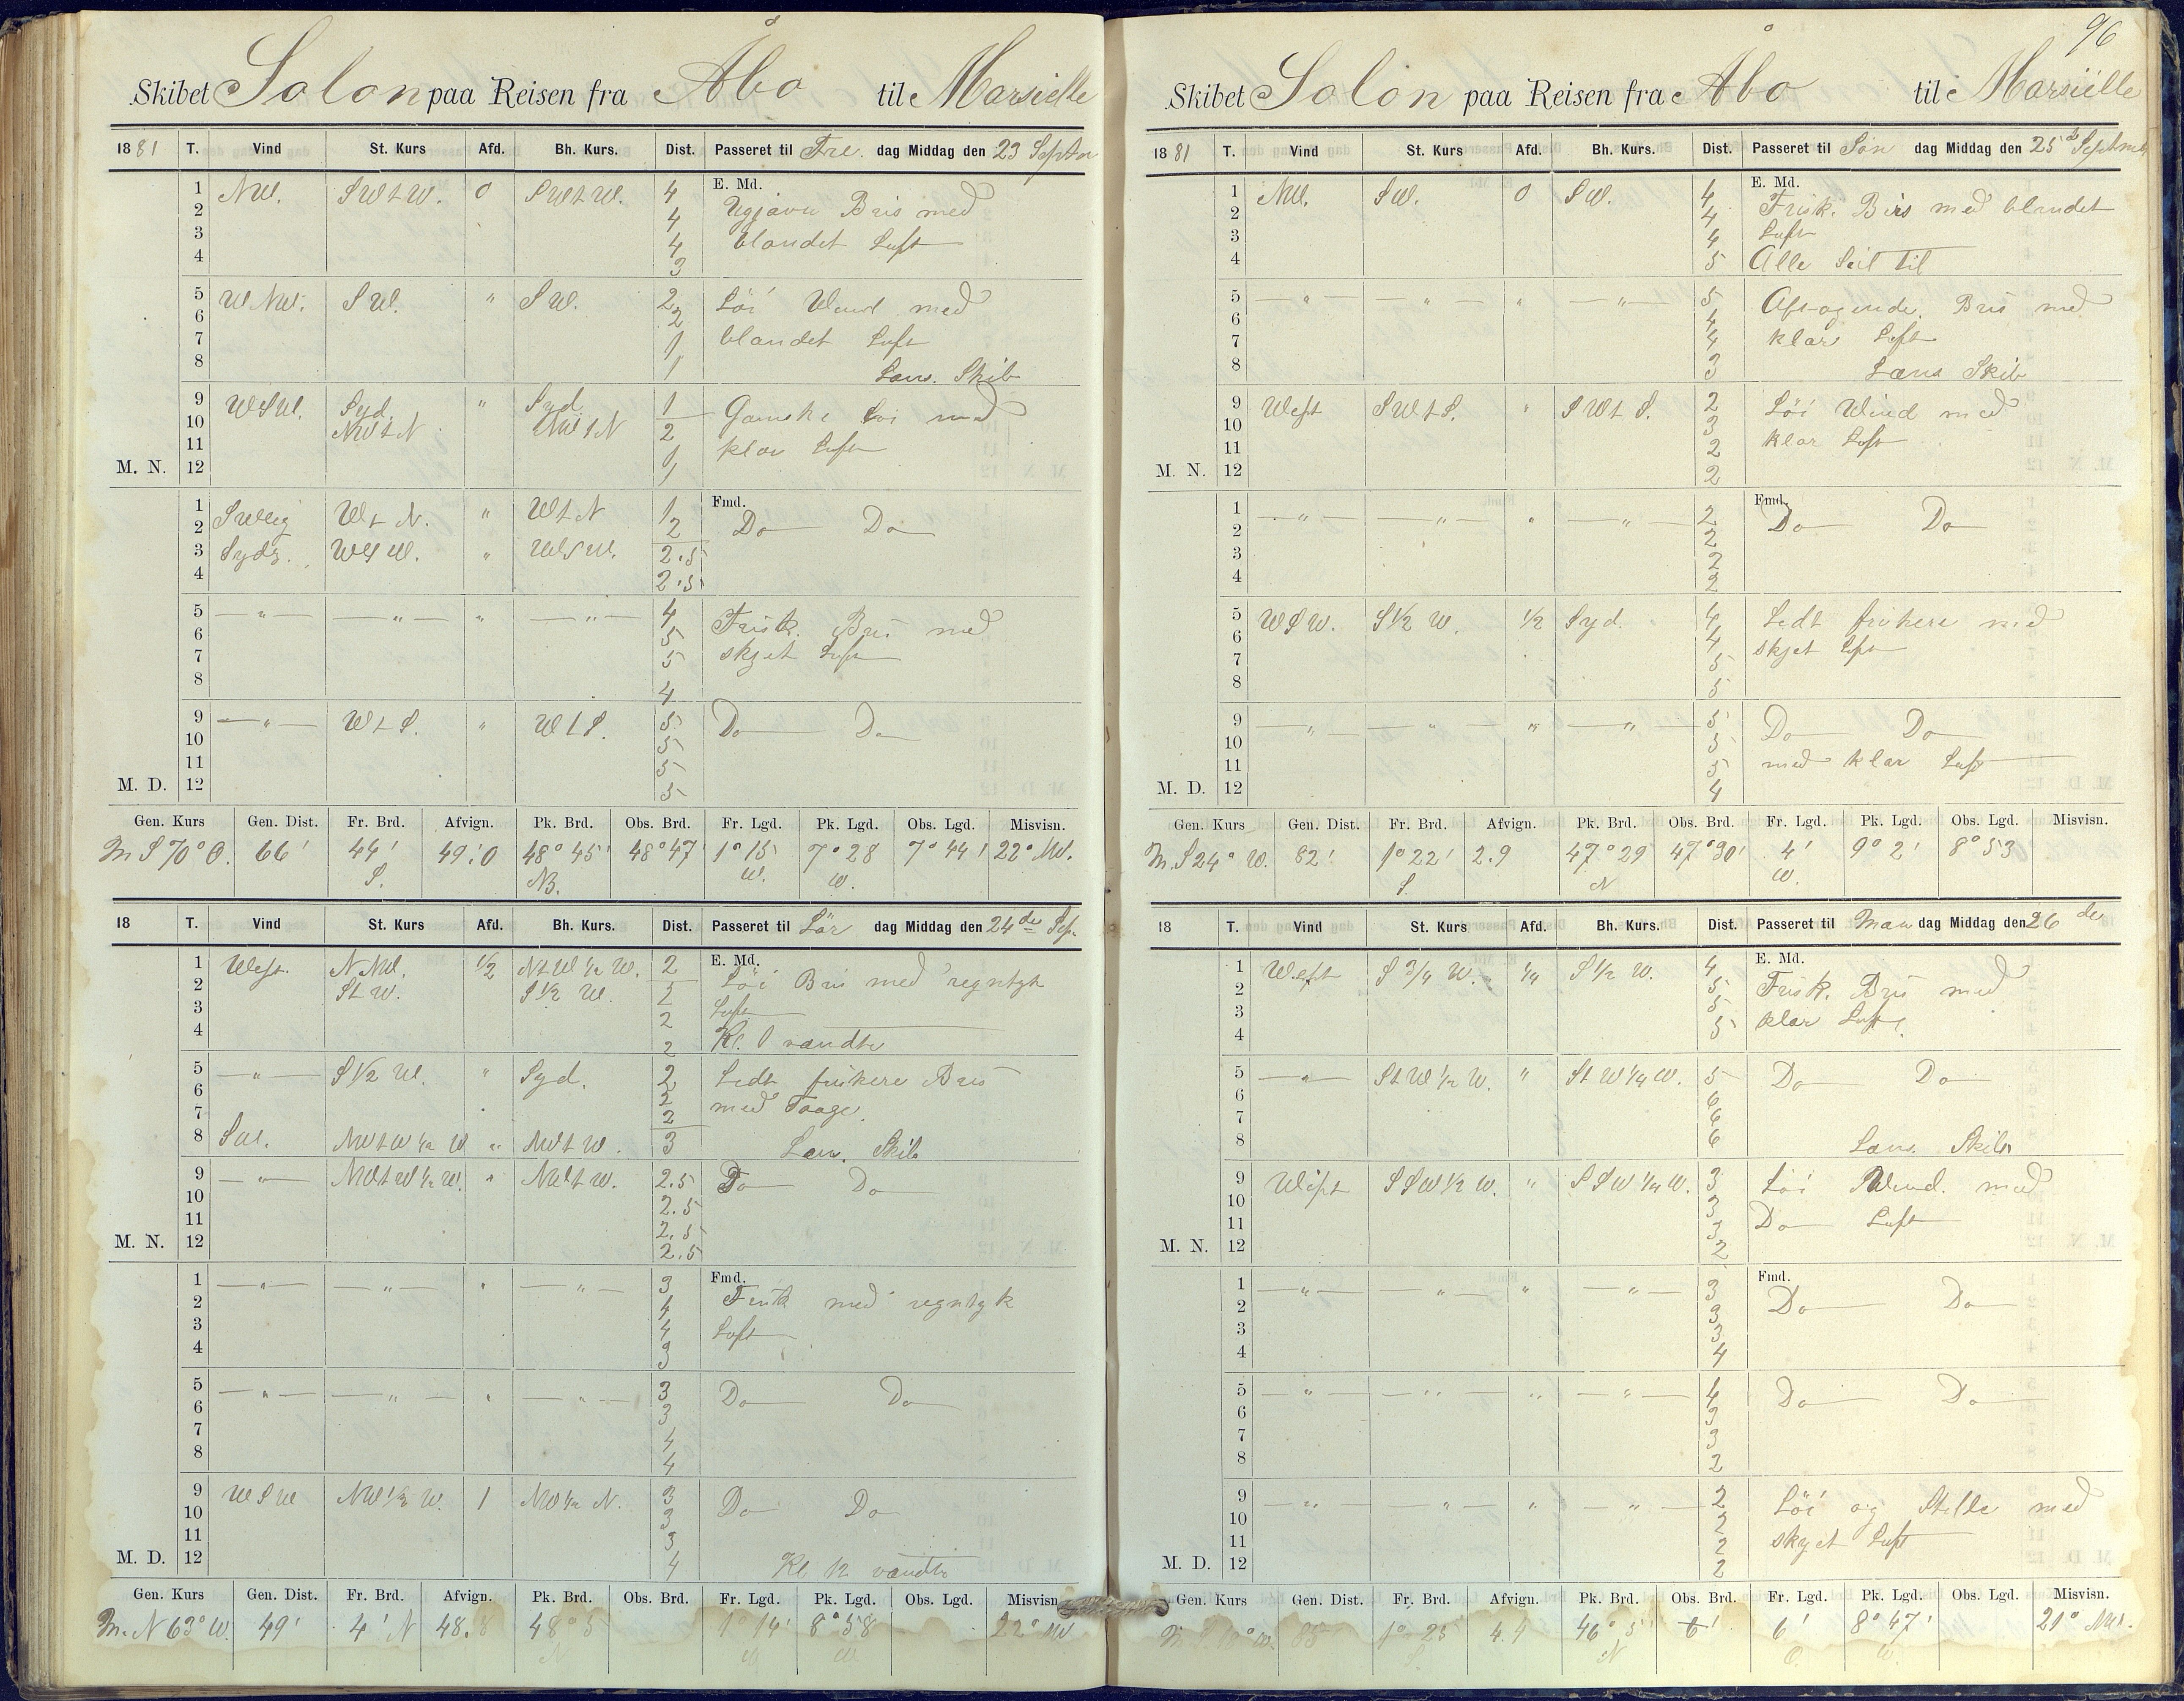 Skibet Solon paa Reisen fra Åbo til Marsielle
1881 T. Vind St. Kurs Afd. Bh. Kurs. Dist. Passeret til Fre. dag Middag den 23 Septbr
E. Md.
1 NW. SWtW. 0 SWtW. 4
2 4 Ugjævn Bris med
3 4 blandet Luft
4 3
5 WNW. SW. " SW. 2 Löi Wind med
6 2
7 1 blandet Luft
8 1 Læns. Skib
9 WSW. Syd. " Syd. 1 Ganske Löi med
10 NWtN NWtN 2
11 1 klar Luft
M. N. 12 1
Fmd.
1 SWlig WtN. " WtN 1
2 2 Do Do
3 Sydg. WSW. " WSW. 2.5
4 2.5
5 " " " " 4 Frisk. Bris med
6 5
7 5 skyet Luft
8 4
9 " WtS. " WtS. 5 Do Do
10 5
11 5
M. D. 12 5
Gen. Kurs Gen. Dist. Fr. Brd. Afvign. Pk. Brd. Obs. Brd. Fr. Lgd. Pk. Lgd. Obs. Lgd. Misvisn.
M S 70° O. 66' 44' 49.'0 48° 45' 48° 47' 1° 15' 7° 28 7° 44' 22° NW.
S. NB. W. W.
18 T. Vind St. Kurs Afd. Bh. Kurs. Dist. Passeret til Lör dag Middag den 24de Sep.
E. Md.
1 West. NNW. 1/2 NtW 1/2 W. 2 Löi Bris med regntyk
2 StW. S 1/2 W. 2
3 2 Luft
4 2 Kl. 1 vendte
5 " S 1/2 W. " Syd. 2 Lidt friskere Bris
6 2
7 2 med Taage.
8 SW. NWtW 1/2 W " NWtW. 3 Læns. Skib
9 " NWtW 1/2 W. " NWtW. 2.5 Do Do
10 2.5
11 2.5
M. N. 12 2.5
Fmd.
1 " " " " 3 Frisk med regntyk
2 4
3 4 Luft
4 3
5 " " " " 3 Do Do
6 3
7 4
8 4
9 WSW NW 1/2 W. 1 NW 1/2 N. 3 Do Do
10 3
11 3
M. D. 12 4 Kl 12 vendte
Gen. Kurs Gen. Dist. Fr. Brd. Afvign. Pk. Brd. Obs. Brd. Fr. Lgd. Pk. Lgd. Obs. Lgd. Misvisn.
M. N 63° W. 49' 4' N 48.8 48° 5 1° 14' 8° 58 22° NW
N W W
96
Skibet Solon paa Reisen fra Åbo til Marsielle
1881 T. Vind St. Kurs Afd. Bh. Kurs. Dist. Passeret til Søn dag Middag den 25de Septemb
E. Md.
1 NW. SW. 0 SW. 4 Frisk. Bris med blandet
2 4
3 4 Luft
4 5 Alle Seil til
5 " " " " 5 Aftagende. Bris med
6 4
7 4 klar Luft
8 3 Læns Skib
9 West SWtS. " SWtS. 2 Löi Wind med
10 3
11 2 klar Luft
M. N. 12 2
Fmd.
1 " " " " 2 Do Do
2 2
3 2
4 2
5 WSW. S 1/2 W. 1/2 Syd. 4 Lidt friskere med
6 4
7 5 skyet Luft
8 5
9 " " " " 5 Do Do
10 5
11 5 med klar Luft
M. D. 12 4
Gen. Kurs Gen. Dist. Fr. Brd. Afvign. Pk. Brd. Obs. Brd. Fr. Lgd. Pk. Lgd. Obs. Lgd. Misvisn.
M. S 24° W. 82' 1° 22' 2.9 47° 29 47° 30' 4' 9° 2' 8° 53
S. N W.
18 T. Vind St. Kurs Afd. Bh. Kurs. Dist. Passeret til Man dag Middag den 26de
E. Md.
1 West S 3/4 W. 1/4 S 1/2 W. 4
2 5 Frisk. Bris med
3 5 klar Luft.
4 5
5 " StW 1/2 W. " StW 1/4 W. 5 Do Do
6 6
7 6
8 6 Læns. Skib
9 West SSW 1/2 W. " SSW 1/4 W. 3 Löi Wind. med
10 3
11 3 Do Luft
M. N. 12 2
Fmd.
1 " " " " 3
2 3 Do Do
3 3
4 4
5 " " " " 4 Do Do
6 3
7 3
8 2
9 " " " " 2 Löi og Stille med
10 2
11 2 skyet Luft
M. D. 12 2
Gen. Kurs Gen. Dist. Fr. Brd. Afvign. Pk. Brd. Obs. Brd. Fr. Lgd. Pk. Lgd. Obs. Lgd. Misvisn.
M S 10° W. 85 1° 25 4.4 46° 5' 6' 6' 8° 47' 21° NW.
S N O. W.